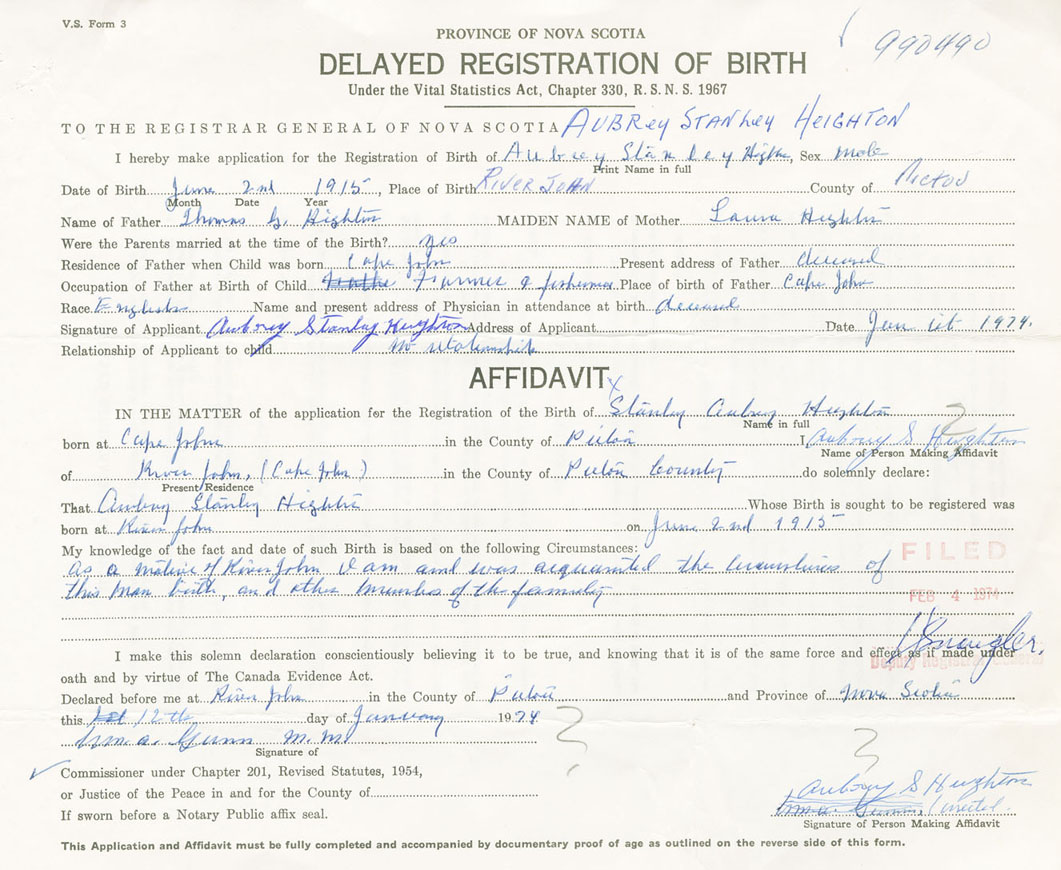 V.S. Form 3
990490
PROVINCE OF NOVA SCOTIA
DELAYED REGISTRATION OF BIRTH
Under the Vital Statistics Act, Chapter 330, R. S. N. S. 1967
TO THE REGISTRAR GENERAL OF NOVA SCOTIA AUBREY STANLEY HEIGHTON
I hereby make application for the Registration of Birth of Aubrey Stanley Sex Male
Print Name in full
Date of Birth June 2nd 1915, Place of Birth RIVER JOHN County of Pictou
Month Date Year
Name of Father Thomas G. Heighton MAIDEN NAME of Mother Laura Heighton
Were the Parents married at the time of the Birth? yes
Residence of Father when Child was born Cape John Present address of Father deceased
Occupation of Father at Birth of Child Farmer & fisherman Place of birth of Father Cape John
Race English Name and present address of Physician in attendance at birth deceased
Signature of Applicant Aubrey Stanley Heighton Address of Applicant Date Jan 1st 1974.
Relationship of Applicant to child no relationship
AFFIDAVIT
IN THE MATTER of the application for the Registration of the Birth of Stanley Aubrey Heighton
Name in full
born at Cape John in the County of Pictou I Aubrey S Heighton
Name of Person Making Affidavit
of River John, (Cape John) in the County of Pictou County do solemnly declare:
Present Residence
That Aubrey Stanley Heighton Whose Birth is sought to be registered was
born at River John on June 2nd 1915
My knowledge of the fact and date of such Birth is based on the following Circumstances:
As a native of River John I am and was acquainted the of
this man birth, and other members of the family
FILED
FEB 4 1974
Deputy Registrar General
I make this solemn declaration conscientiously believing it to be true, and knowing that it is of the same force and effect as if made under
oath and by virtue of The Canada Evidence Act.
Declared before me at River John in the County of Pictou and Province of Nova Scotia
this 12th day of January 1974
Gunn
Signature of
Commissioner under Chapter 201, Revised Statutes, 1954,
or Justice of the Peace in and for the County of
If sworn before a Notary Public affix seal.
Aubrey S Heighton
Signature of Person Making Affidavit
This Application and Affidavit must be fully completed and accompanied by documentary proof of age as outlined on the reverse side of this form.